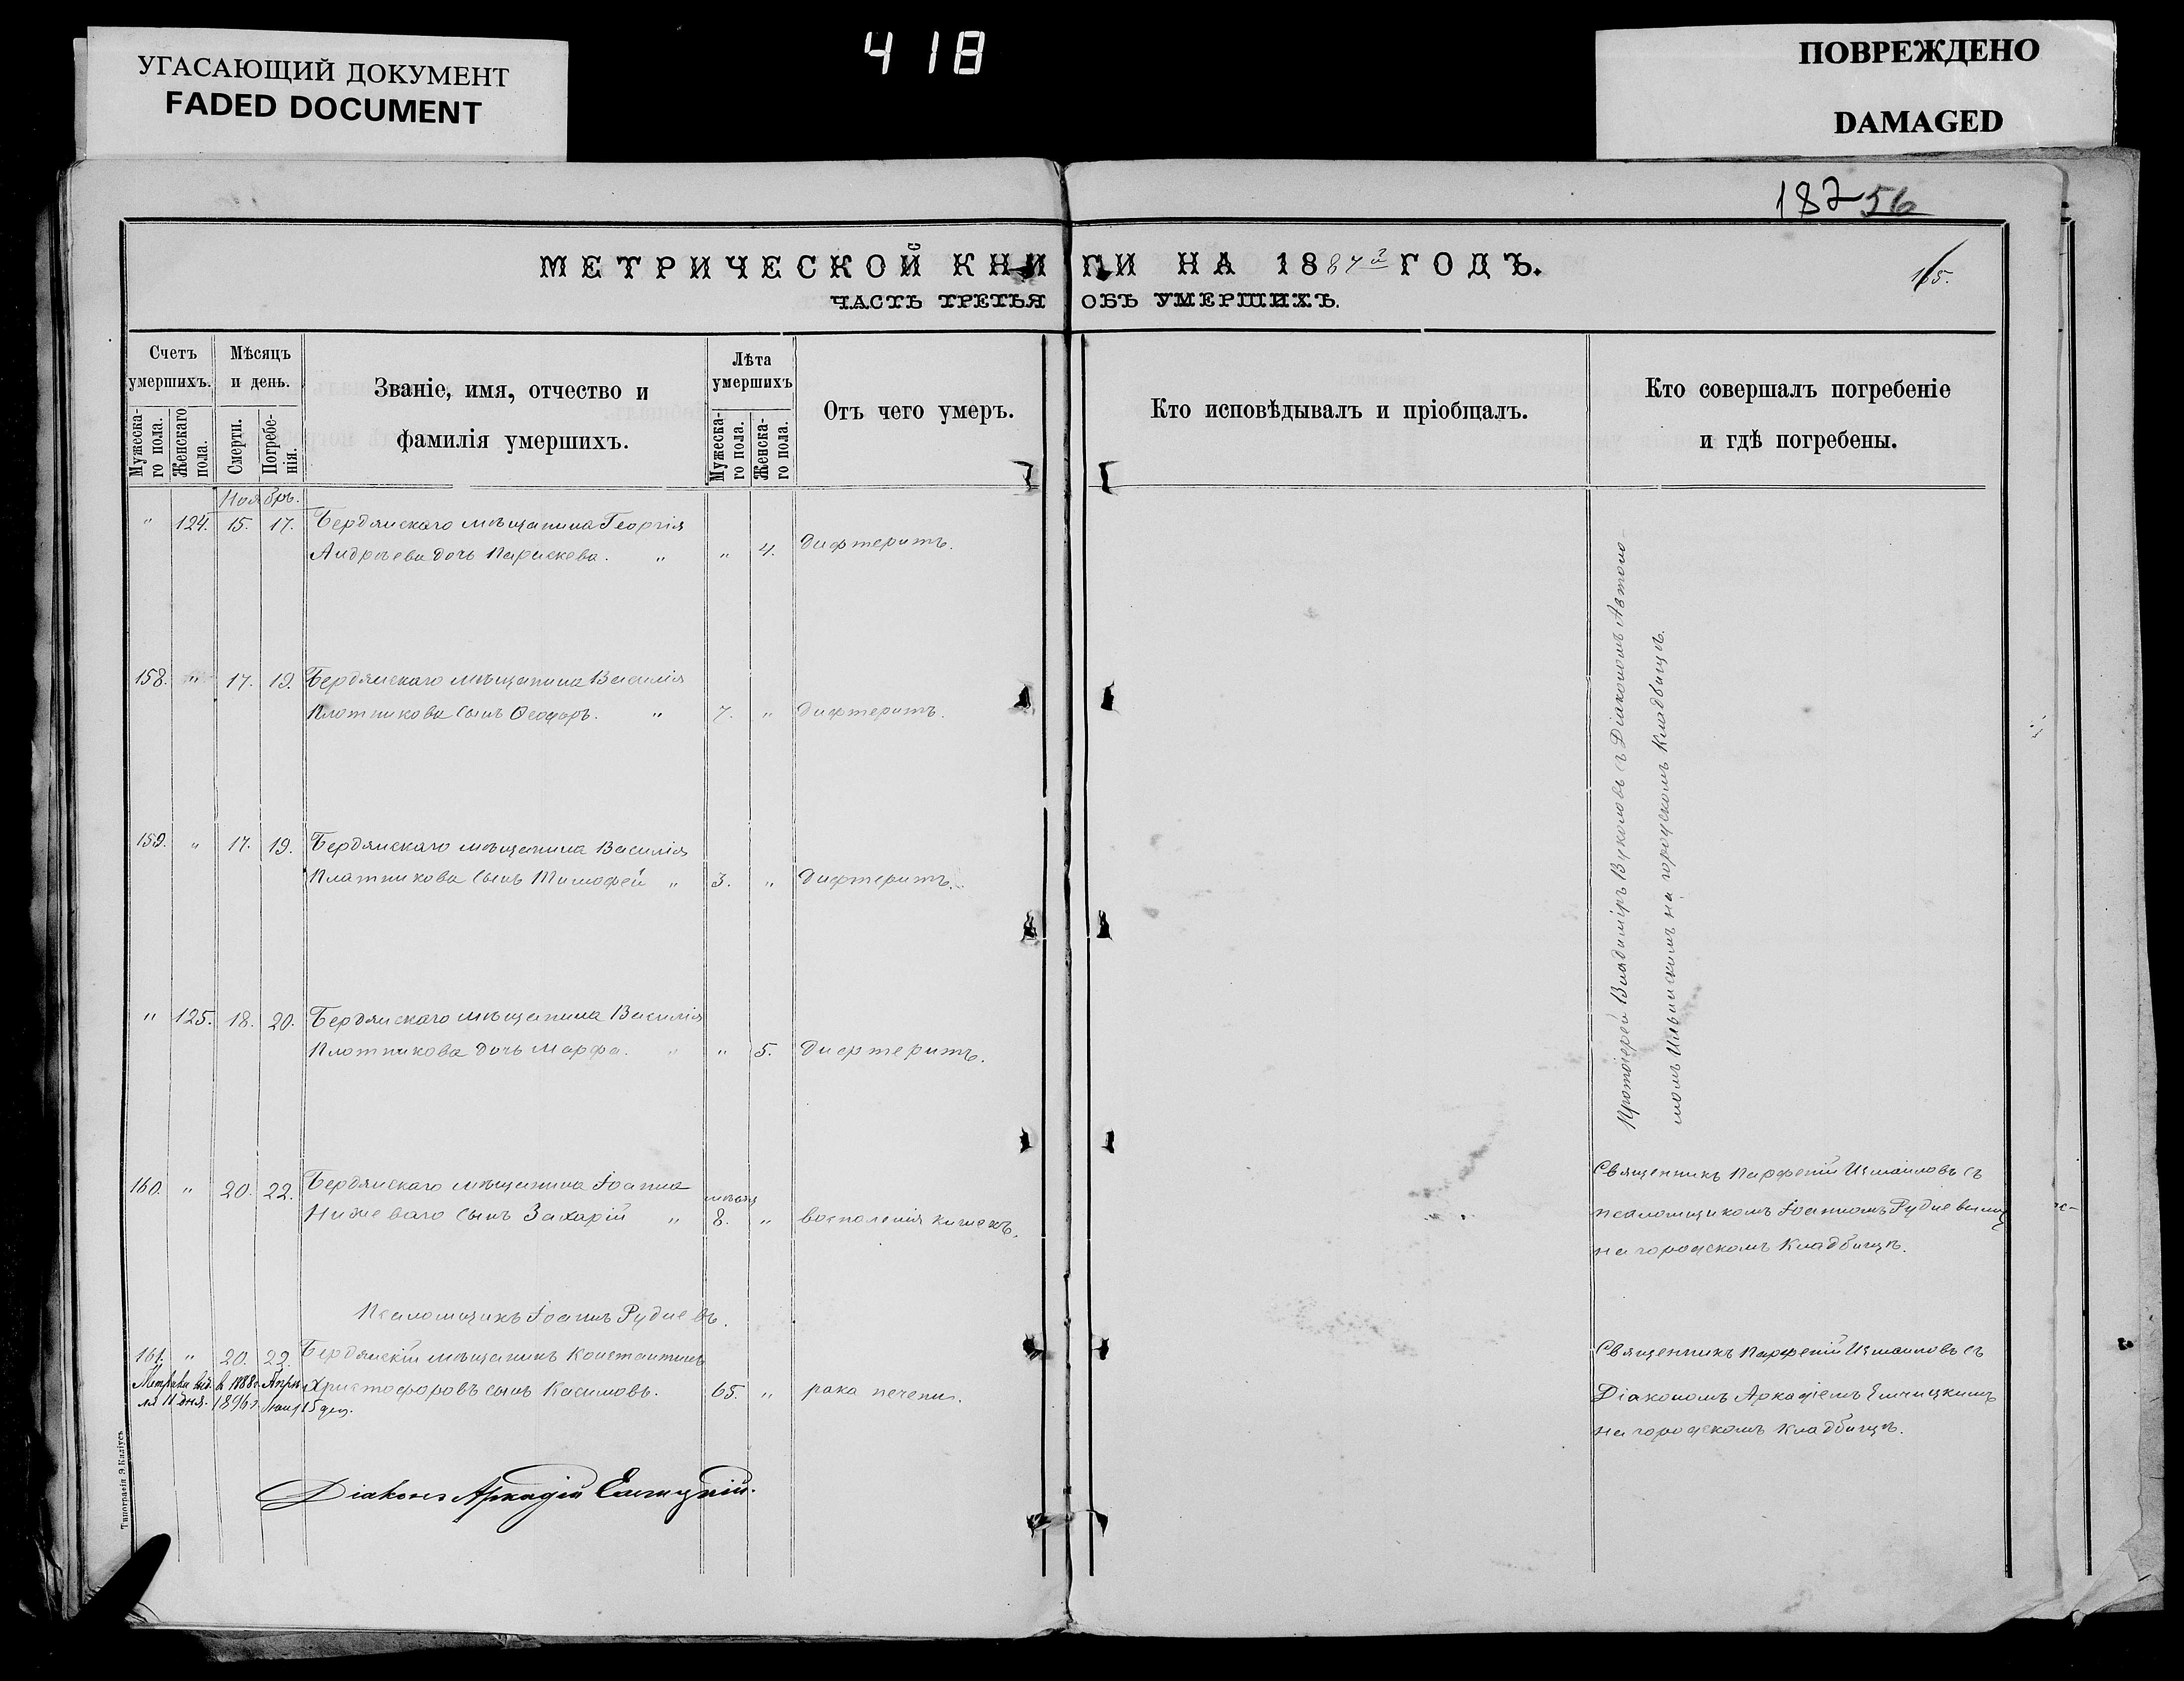 УГАСАЮЩИЙ ДОКУМЕНТ
FADED DOCUMENT
418
ПОВРЕЖДЕНО
DAMAGED
187 56
МЕТРИЧЕСКОЙ КНИГИ НА 1887й ГОДЪ.
165.
ЧАСТЬ ТРЕТЬЯ ОБЪ УМЕРШИХЪ.
Счетъ умершихъ.
Мужеска-го пола.
Женскаго пола.
Мѣсяцъ и день.
Смерти.
Погребе-нія.
Званіе, имя, отчество и
фамилія умершихъ.
Лѣта умершихъ
Мужеска-го пола.
Женска-го пола.
Отъ чего умеръ.
Кто исповѣдывалъ и пріобщалъ.
Кто совершалъ погребеніе
и гдѣ погребены.
Ноябрь.
" 124. 15. 17. Бердянскаго мѣщанина Георгія
Андреева дочь Параскева. " " 4. дифтеритъ.
158. " 17. 19. Бердянскаго мѣщанина Василія
Плотникова сынъ Ѳеодоръ. " 7. " дифтеритъ.
159. " 17. 19. Бердянскаго мѣщанина Василія
Платникова сынъ Тимофей " 3. " дифтеритъ.
" 125. 18. 20. Бердянскаго мѣщанина Василія
Плотникова дочь Марфа. " " 5. дифтеритъ.
Протоіерей Владиміръ Вуколовъ съ Діакономъ
на городскомъ кладбищѣ.
160. " 20. 22. Бердянскаго мѣщанина Іоанна
сынъ Захарій " 8. " воспаленія кишекъ.
Священникъ Парфеній Измаиловъ съ
псаломщикомъ Іоанномъ
на городскомъ кладбищѣ.
Псаломщикъ Іоаннъ Рудневъ.
161. " 20. 22. Бердянскій мѣщанинъ Константинъ
Христофоровъ сынъ Касимовъ. 65. " рака печени.
Метрика выд. в 1888 г. Апрѣ-
ля 11 дня. 1896 г. 15 дня.
Священникъ Парфеній Измаиловъ съ
Діакономъ Аркадіемъ
на городскомъ кладбищѣ.
Діаконъ Аркадій
Типографія Э. Киліусъ